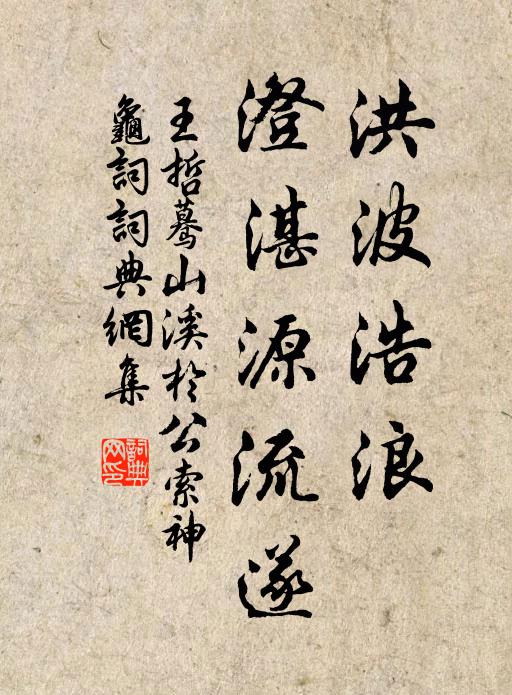 洪波浩浪
澄湛源流遂
王哲蓦山溪於公索神
龜詞詞典網集
詞典
网印